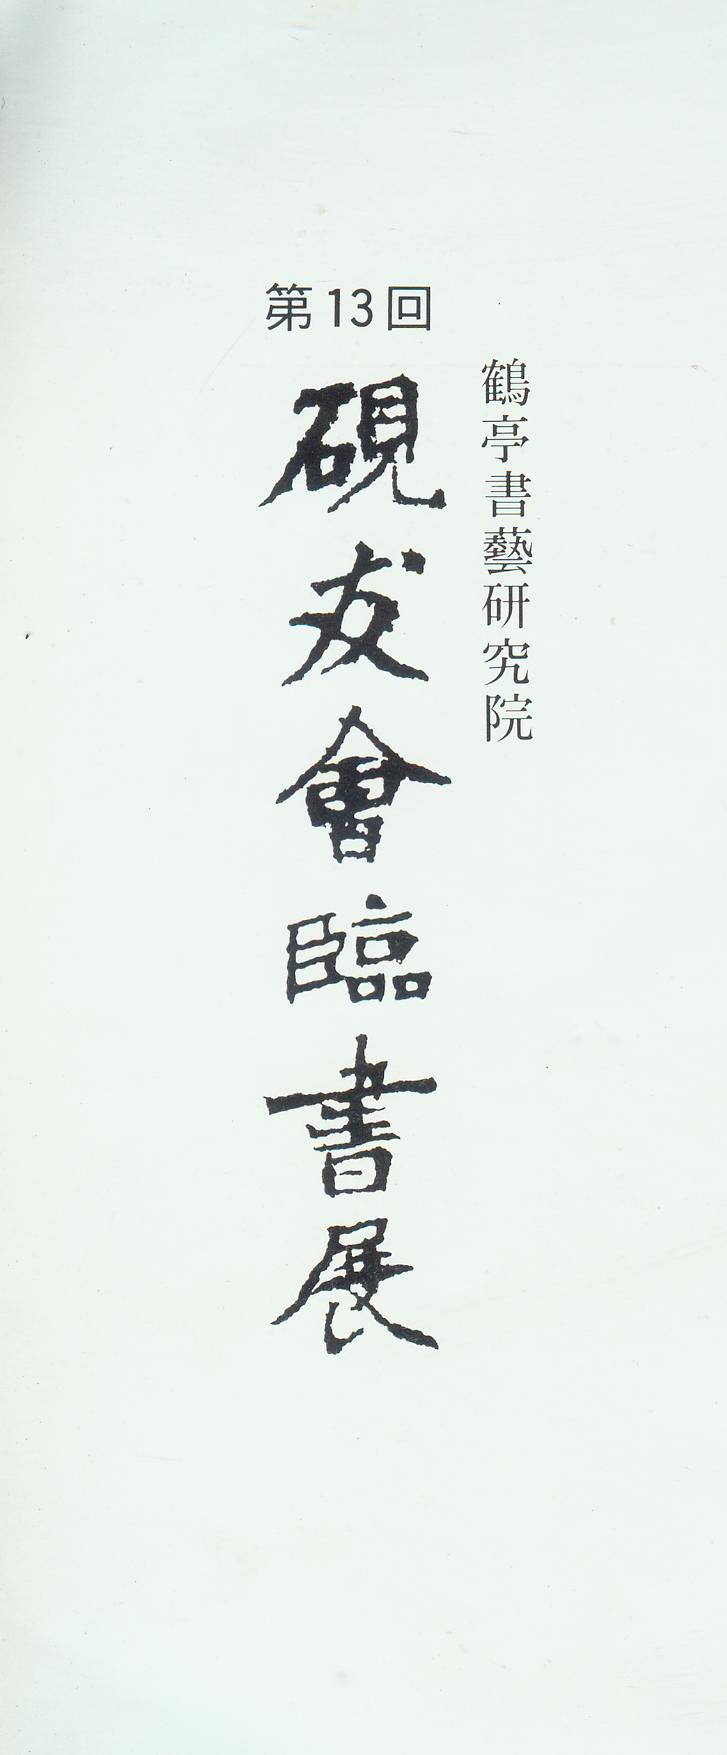 第13回
鶴亭書藝研究院
硯友會臨書展